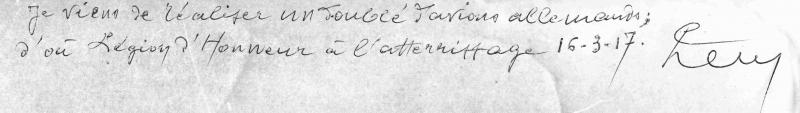 Je viens de réaliser un doublé d'avions allemands;
d'où Légion d'Honneur à l'atterrissage 16-3-17.